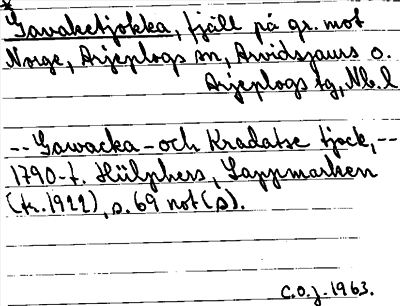 *
Gavaketjåkka, fjäll på gr. mot
Norge, Arjeplogs sn, Arvidsjaurs o.
Arjeplogs tg, Nb. l
-- Gawacka - och Kradatse tjock, --
1790-t. Hülphers, Lappmarken
(tr. 1922), s. 69 not (s).
C.O.J. 1963.